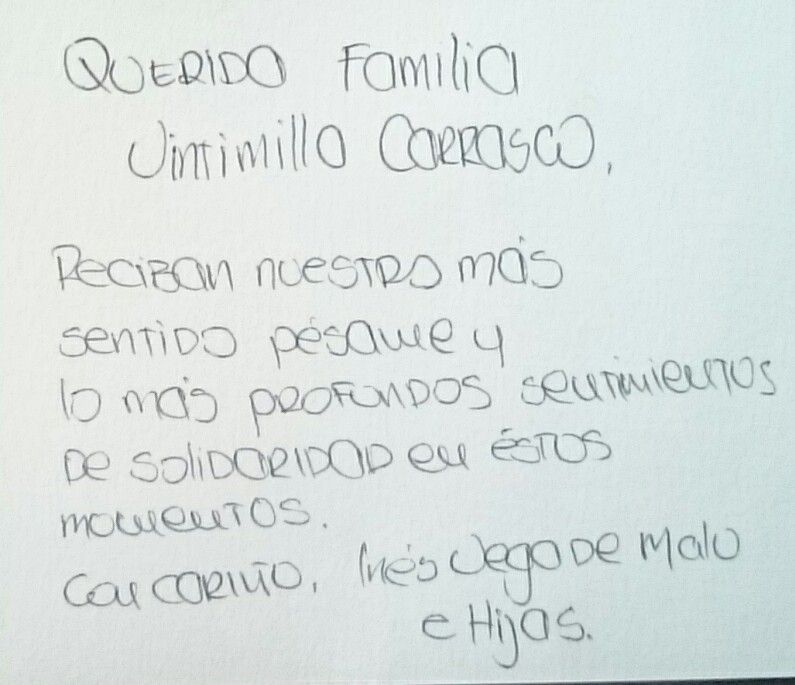 QUERIDO Familia
Vintimilla CARRASCO,
ReciBan nuestro más
sentido pésame y
lo más profundos sentimientos
De soliDaRiDaD en éstos
momentos.
Con cariño, Inés Vega De Malo
e Hijas.